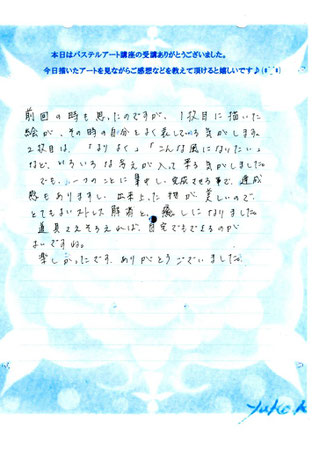 本日はパステルアート講座の受講ありがとうございました。
今日描いたアートを見ながらご感想などを教えて頂けると嬉しいです♪(*^_^*)
前回の時も思ったのですが、1枚目に描いた
絵が、その時の自分をよく表している気がします。
2枚目は、「よりよく」「こんな風になりたい」
など、いろいろな考えが入って来る気がしました。
でも、一つのことに集中し、完成させる事で、達成
感もありますし、出来上った物が美しいので、
とてもよいストレス解消と、癒しになりました。
道具さえそろえれば、自宅でもできるのが
よいですね。
楽しかったです。ありがとうございました。
Yuko.K